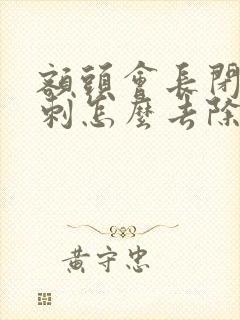 額頭會長閉
刺怎麼去除
黃守忠